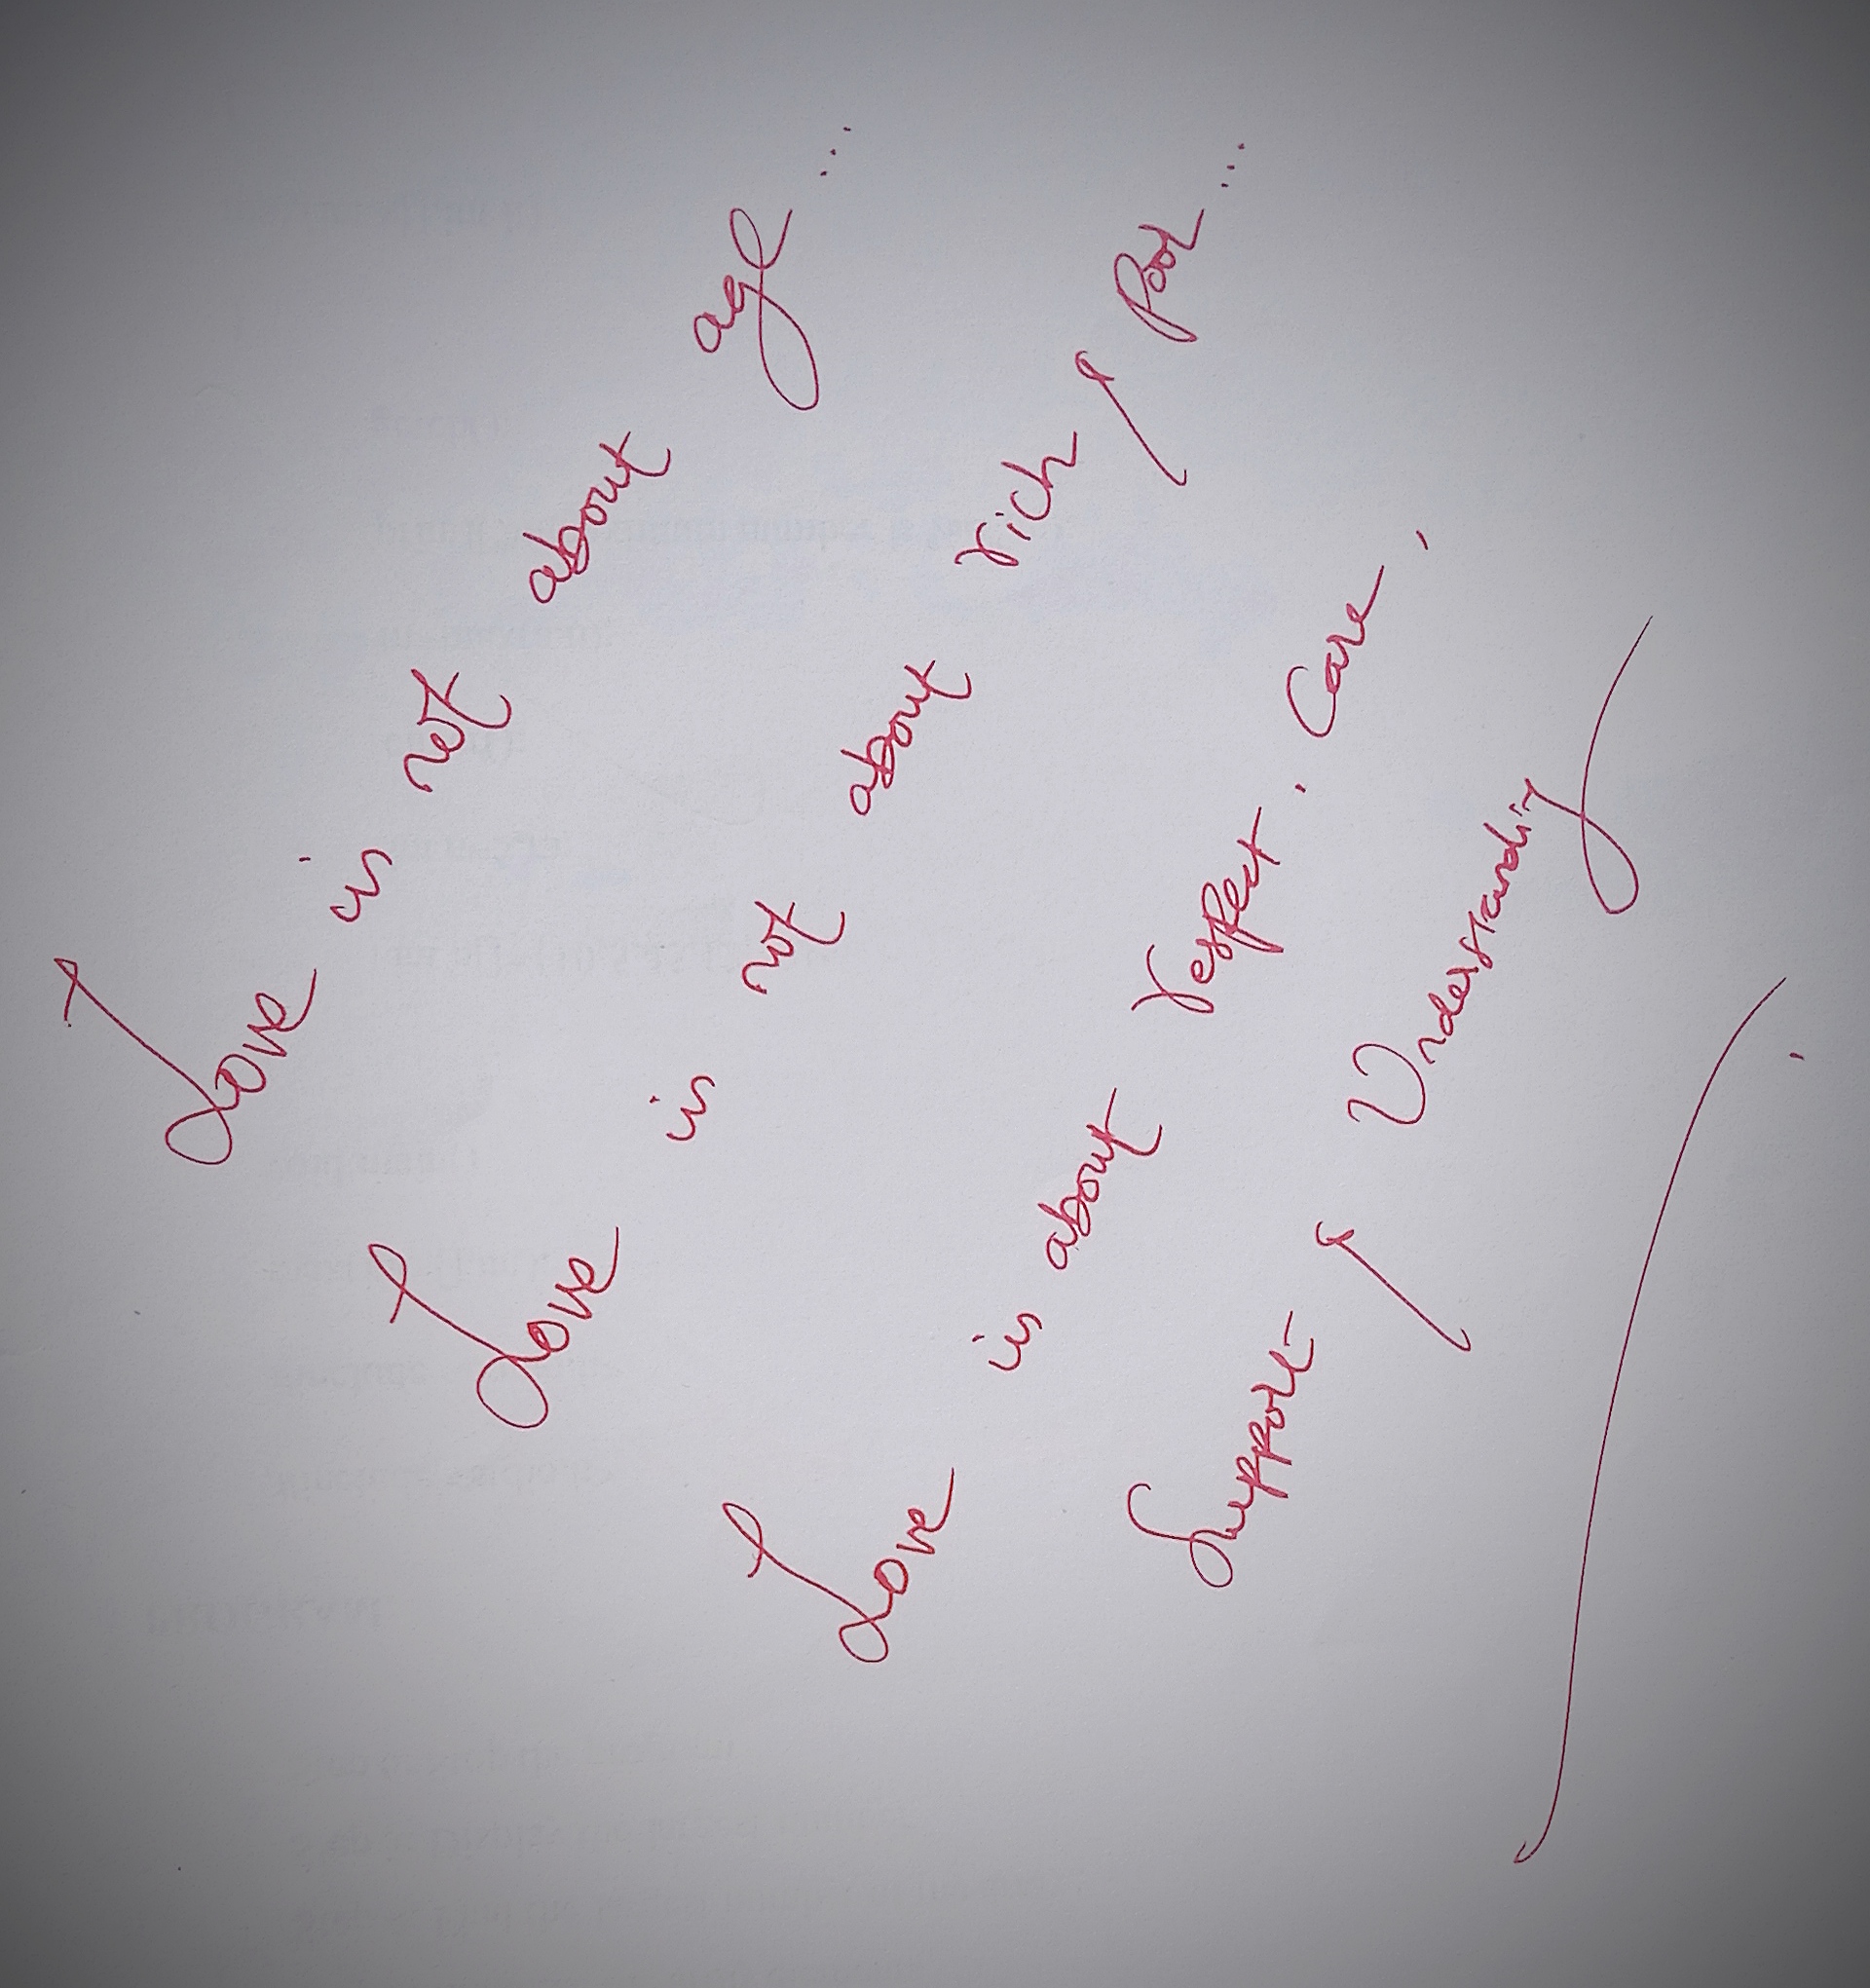 Love is not about age...
Love is not about rich / poor...
Love is about respect, care,
Support / Understanding